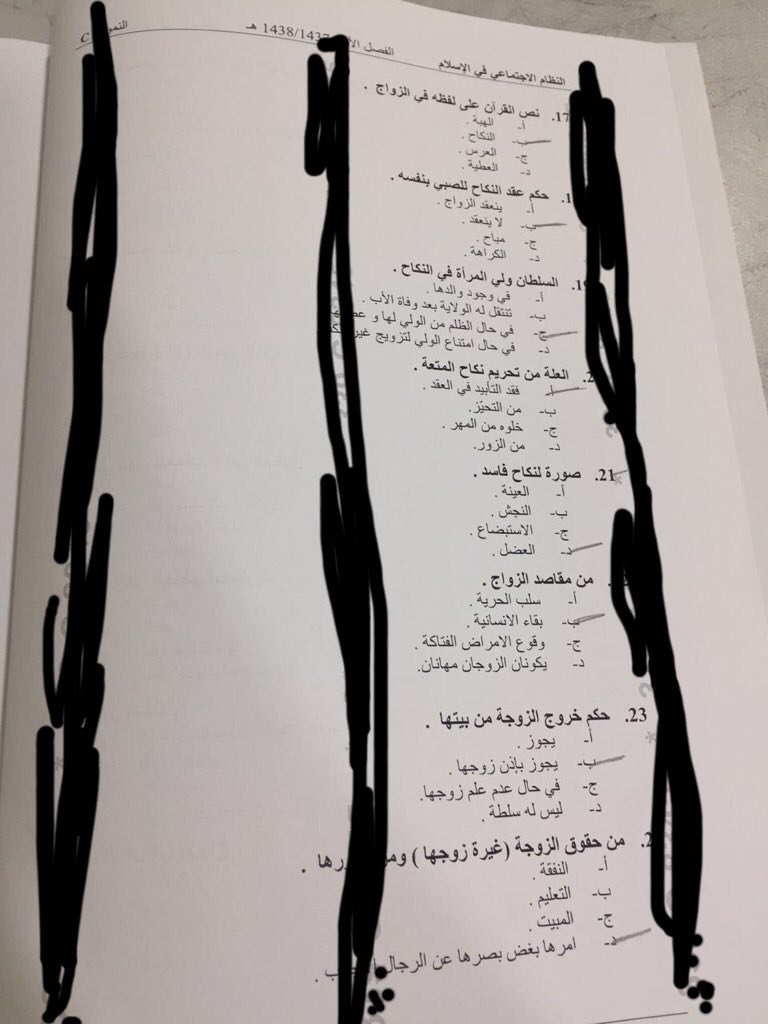 النظام الاجتماعي في الإسلام الفصل 1438/1437 هـ C
17. نص القرآن على لفظه في الزواج .
أ- الهبة .
ب- النكاح .
ج- العرس .
د- العطية .
حكم عقد النكاح للصبي بنفسه .
أ- ينعقد الزواج .
ب- لا ينعقد .
ج- مباح .
د- الكراهة .
السلطان ولي المرأة في النكاح .
أ- في وجود والدها .
ب- تنتقل له الولاية بعد وفاة الأب .
ج- في حال الظلم من الولي لها و
د- في حال امتناع الولي لتزويج غير
العلة من تحريم نكاح المتعة .
أ- فقد التأبيد في العقد .
ب- من التحيّز.
ج- خلوه من المهر .
د- من الزور.
21. صورة لنكاح فاسد .
أ- العينة .
ب- النجش .
ج- الاستبضاع .
د- العضل .
من مقاصد الزواج .
أ- سلب الحرية .
ب- بقاء الانسانية .
ج- وقوع الامراض الفتاكة .
د- يكونان الزوجان مهانان.
23. حكم خروج الزوجة من بيتها .
أ- يجوز .
ب- يجوز بإذن زوجها .
ج- في حال عدم علم زوجها.
د- ليس له سلطة .
من حقوق الزوجة (غيرة زوجها )
أ- النفقة .
ب- التعليم .
ج- المبيت .
د- امرها بغض بصرها عن الرجال